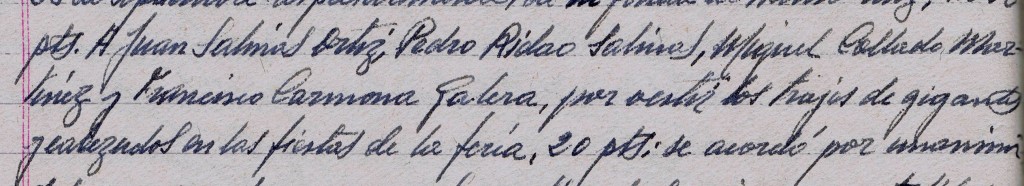 pts. A Juan Salinas Ortiz, Pedro Ridao Salinas, Miguel Collado Mar-
tinez y Francisco Carmona Galera, por vestir los trajes de gigantes
realizados en las fiestas de la feria, 20 pts; se acordó por unanimi